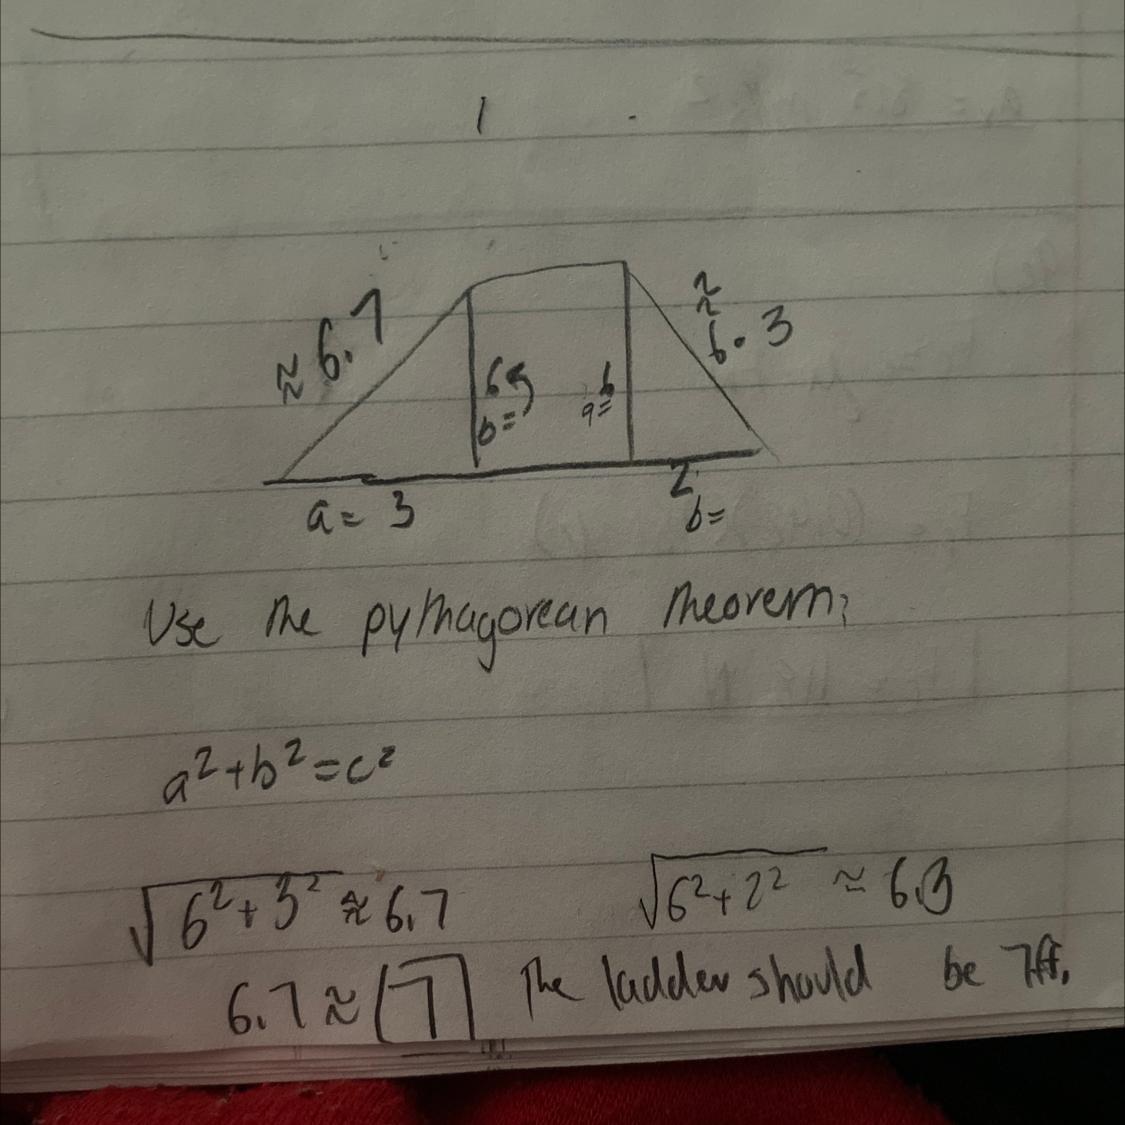 1
≈ 6.7
≈ 6.3
6
b=
6
a=
a= 3
2
b=
Use the pythagorean theorem;
a²+b²=c²
√6²+3² ≈ 6.7
√6²+2² ≈ 6.3
6.7 ≈ 7 The ladder should be 7ft.